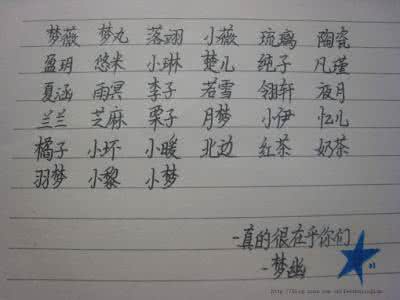 梦薇 梦丸 落翊 小薇 琉璃 陶瓷
盈玥 悠米 小琳 楚儿 纯子 凡瑾
夏涵 雨冥 李子 若雪 翎轩 夜月
兰兰 芝麻 栗子 月梦 小伊 忆儿
橘子 小环 小暖 北边 红茶 奶茶
羽梦 小黎 小梦
-真的很在乎你们
-梦幽